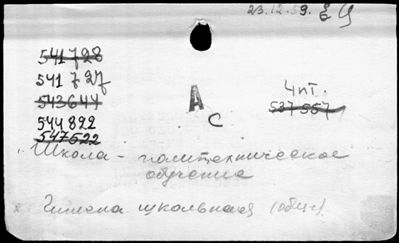 23.12.59. ЕЦ
541728
541727
543644
544822
547522
А
С
4 пт.
537557
Школа - политехническое
обучение
Гигиена школьная (общ.).